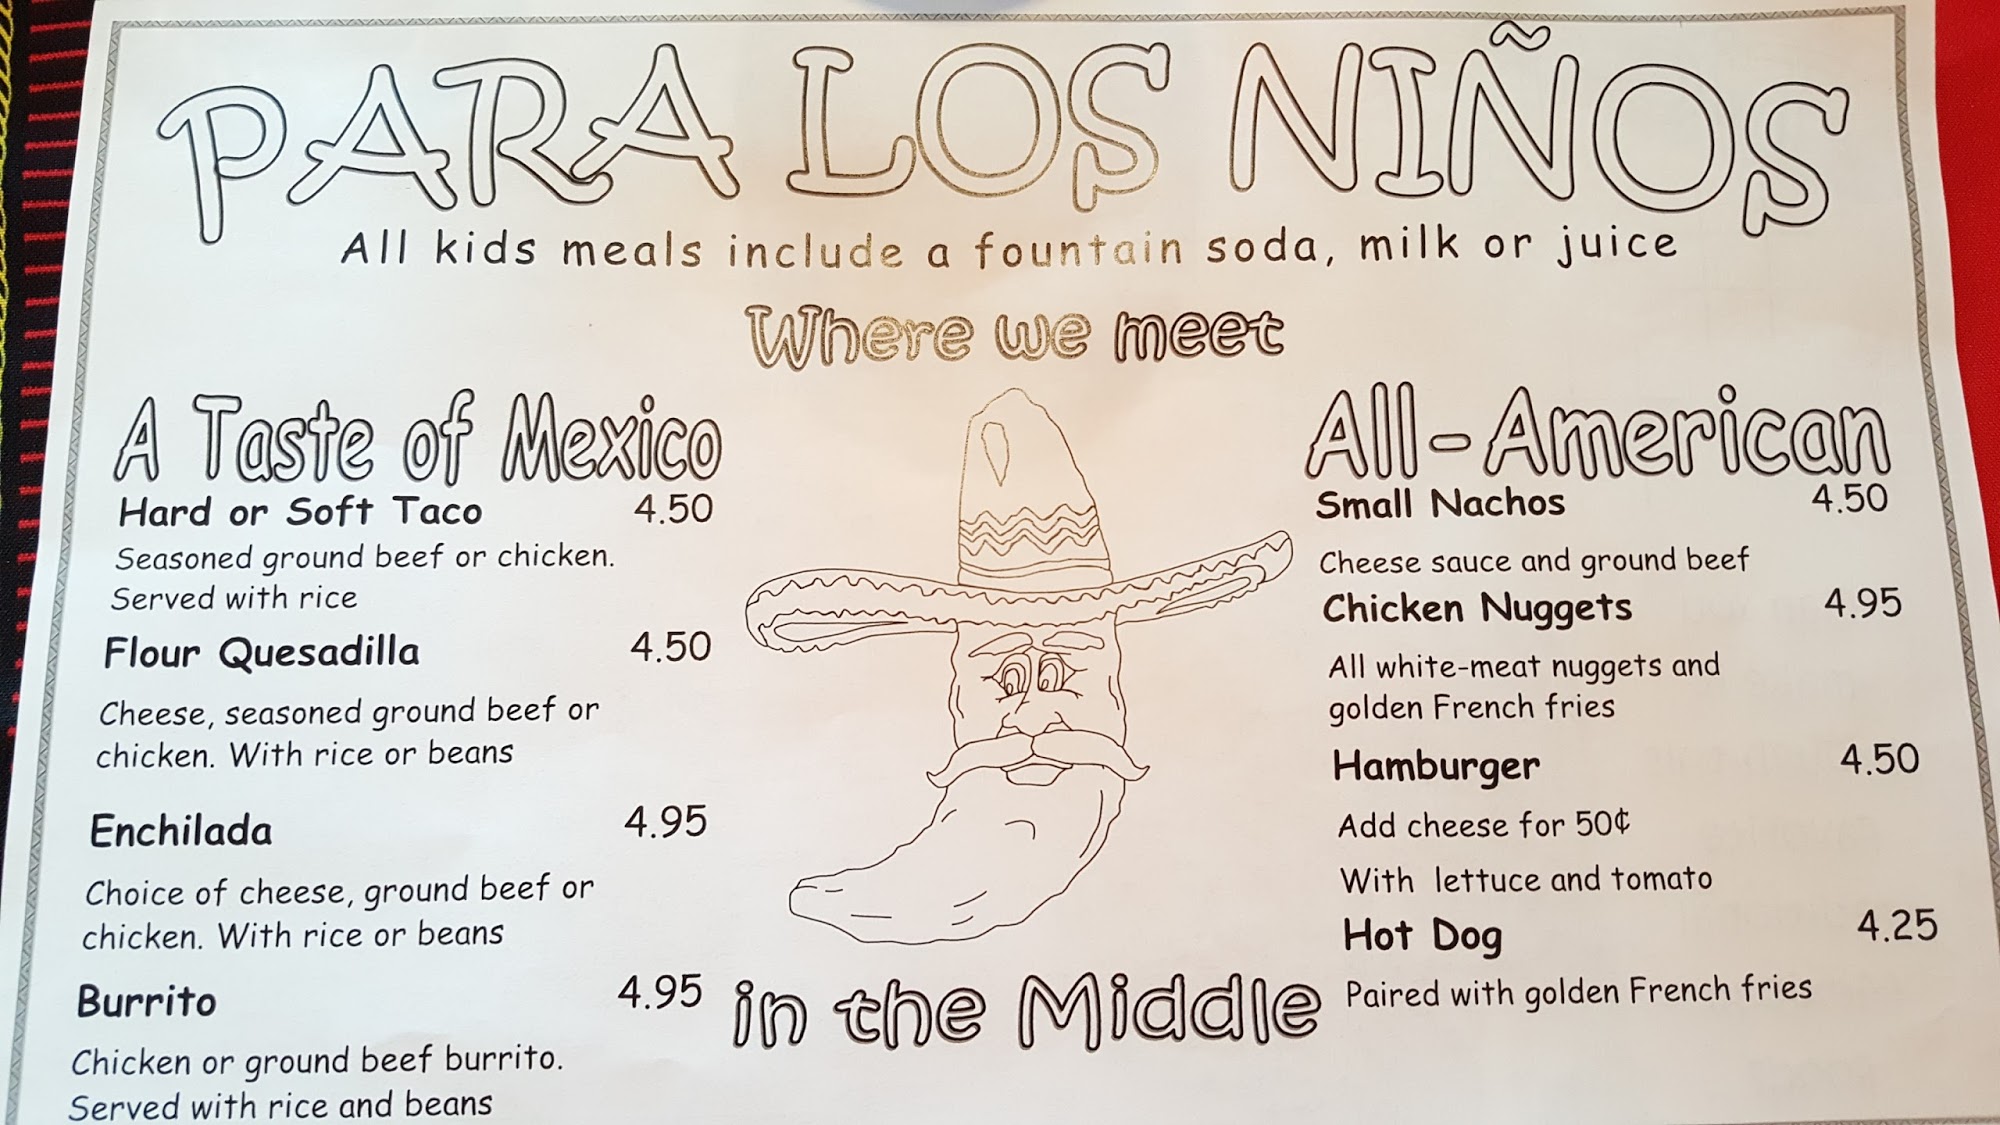 PARA LOS NIÑOS
All kids meals include a fountain soda, milk or juice
Where we meet
A Taste of Mexico
Hard or Soft Taco 4.50
Seasoned ground beef or chicken.
Served with rice
Flour Quesadilla 4.50
Cheese, seasoned ground beef or
chicken. With rice or beans
Enchilada 4.95
Choice of cheese, ground beef or
chicken. With rice or beans
Burrito 4.95
Chicken or ground beef burrito.
Served with rice and beans
All-American
Small Nachos 4.50
Cheese sauce and ground beef
Chicken Nuggets 4.95
All white-meat nuggets and
golden French fries
Hamburger 4.50
Add cheese for 50¢
With lettuce and tomato
Hot Dog 4.25
Paired with golden French fries
in the Middle